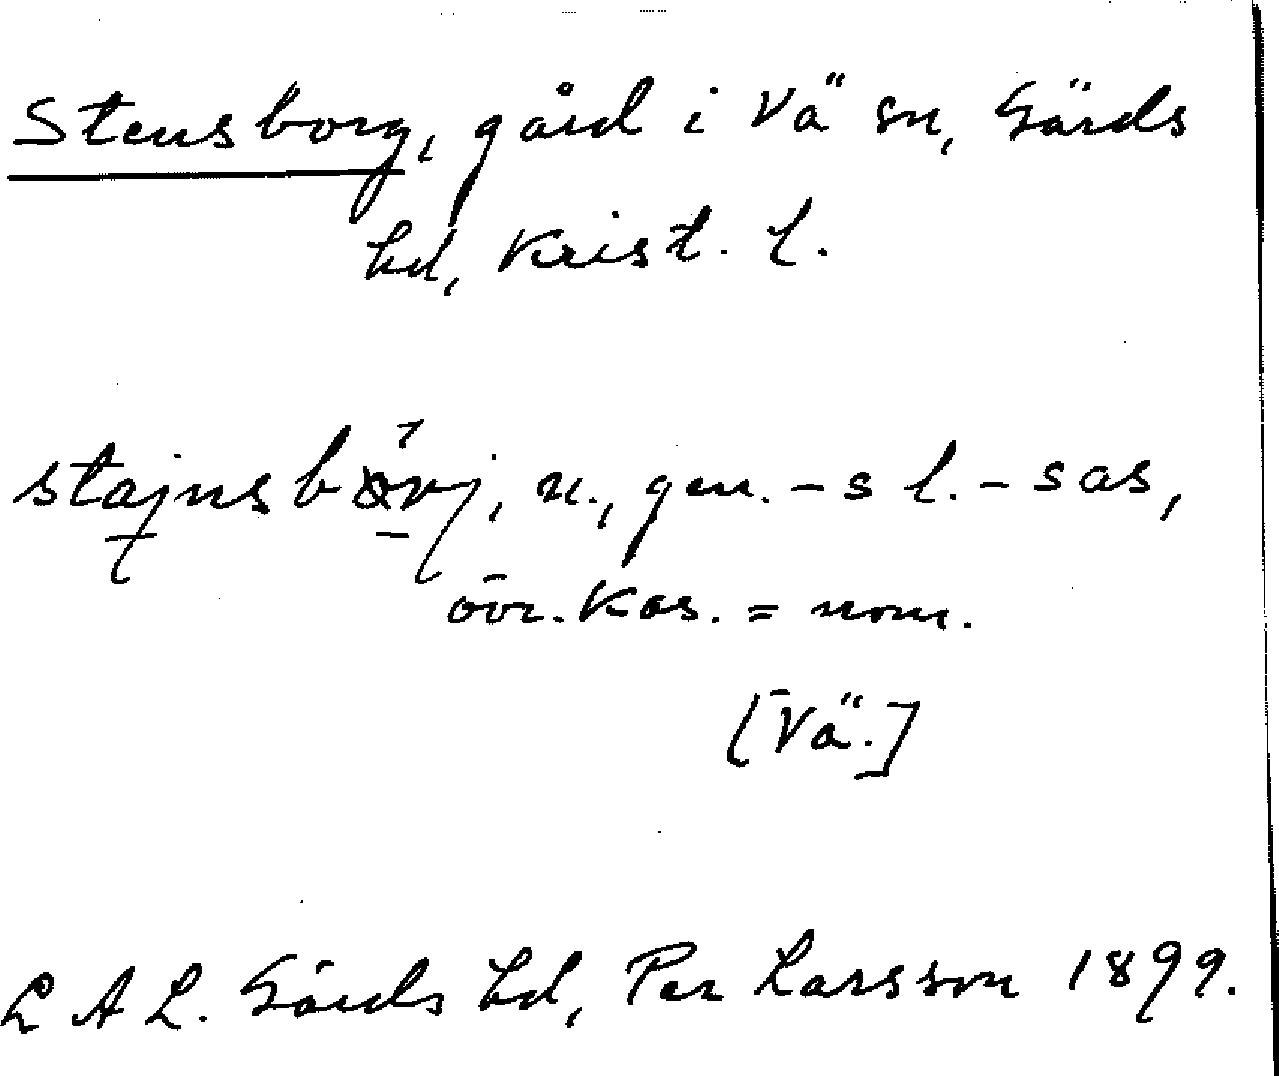 Stensborg, gård i Vä sn, Gärds
hd, Krist. l.
stajnsbȯrj, n., gen. -s l. -sas,
övr. kas. = nom.
[Vä.]
L A L. Gärds hd, Per Larsson 1899.